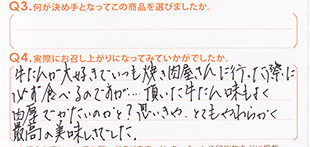 Q3.何が決め手となってこの商品を選びましたか。
Q4.実際にお召し上がりになってみていかがでしたか。
牛たんが大好きでいつも焼き肉屋さんに行った際に
必ず食べるのですが…頂いた牛たん味もよく
肉厚でかたいのかと?思いきや、とてもやわらかく
最高の美味しさでした。